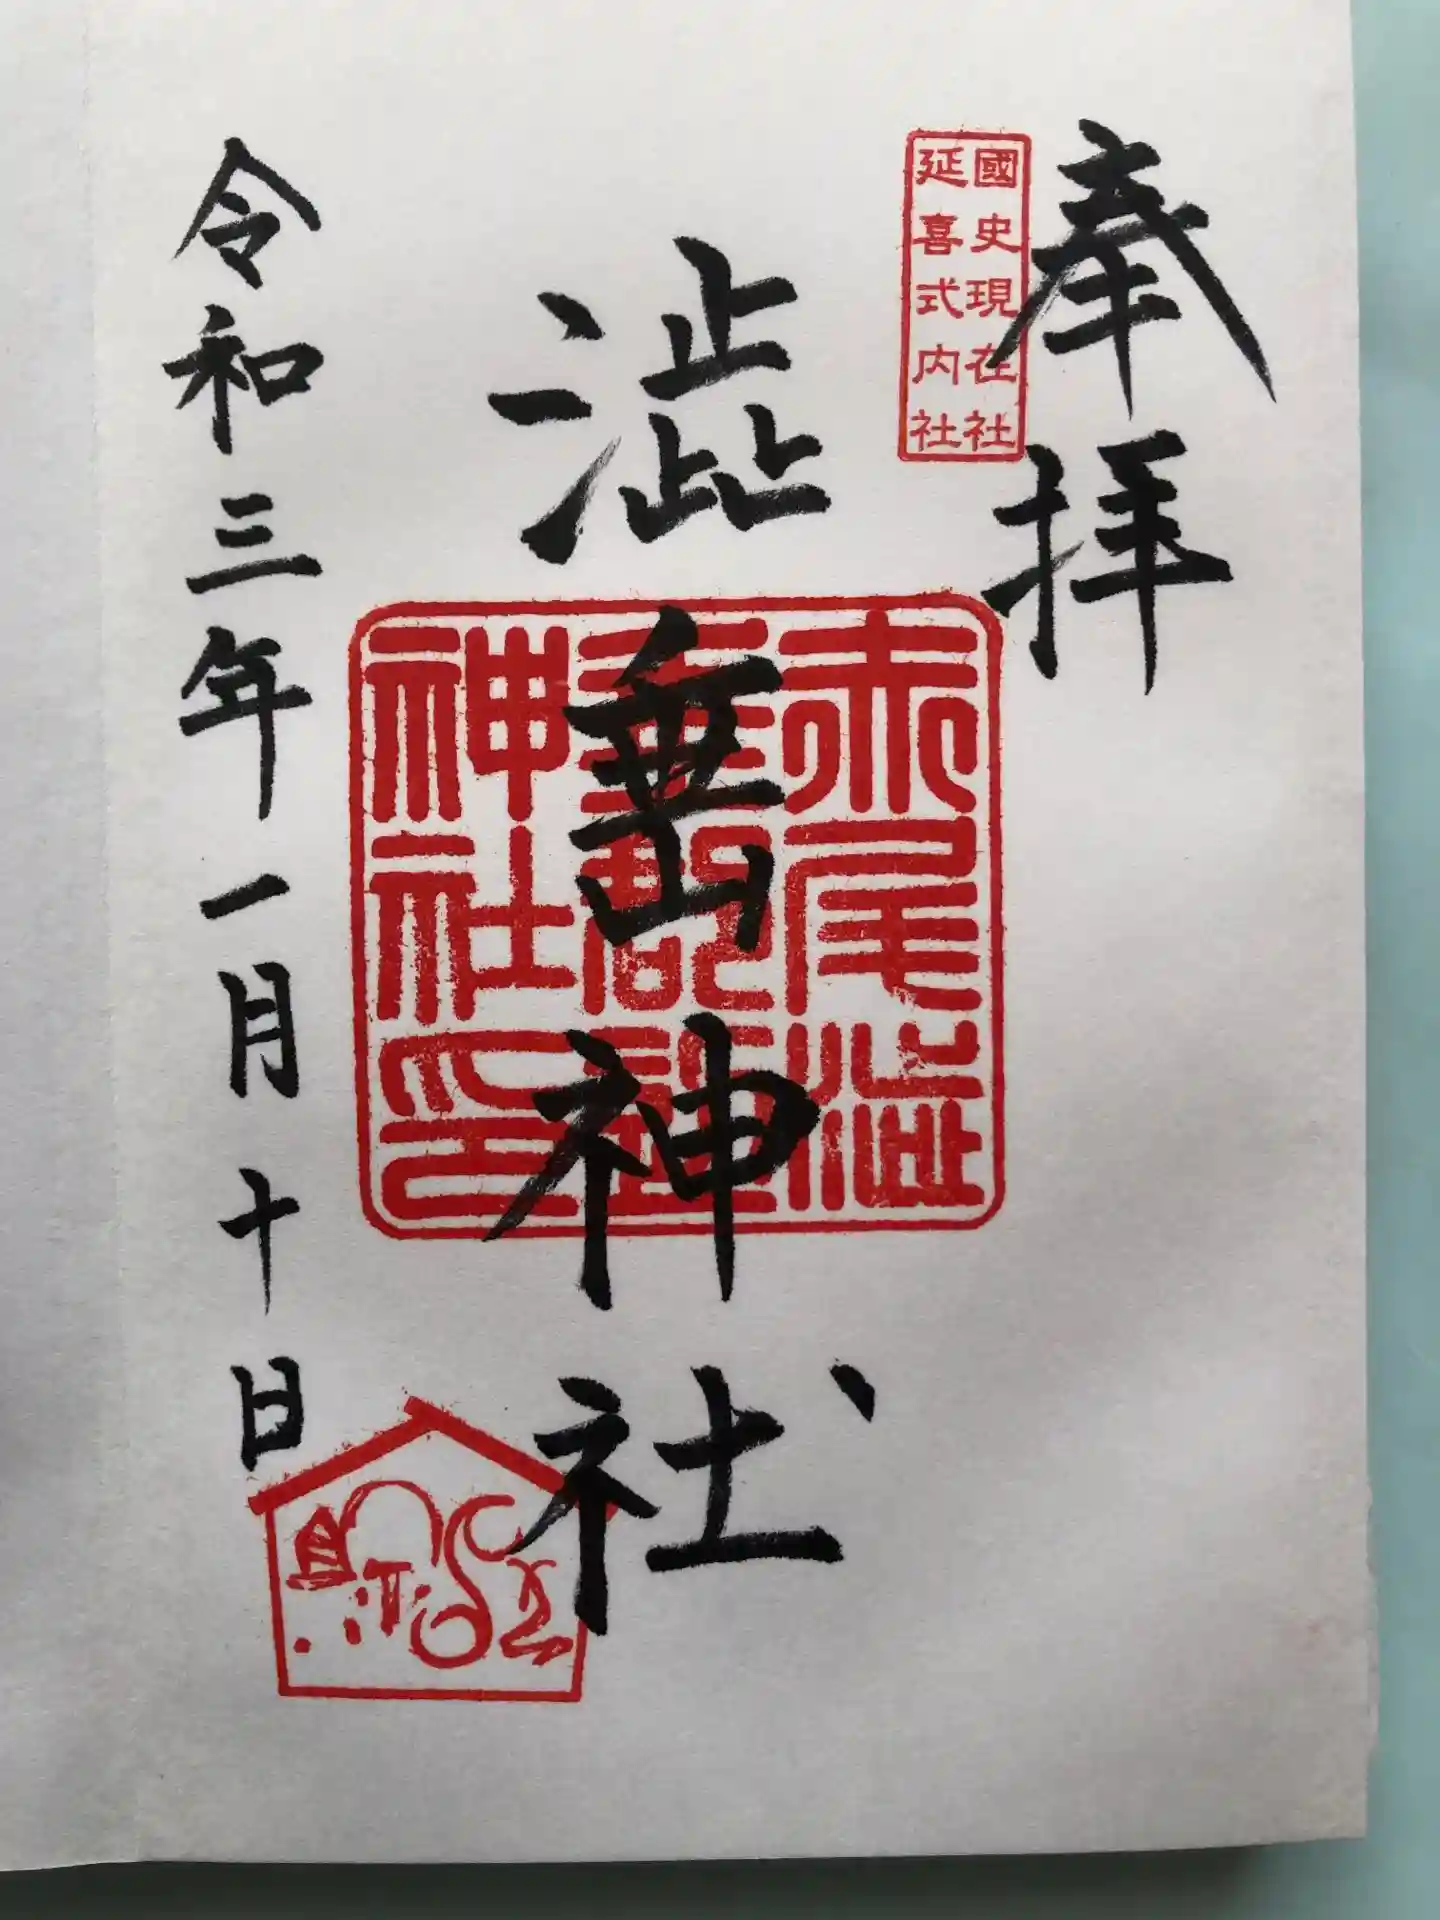 奉拝
國史現在社
延喜式内社
澁垂神社
赤尾澁
垂郡
神社印
令和三年一月十日